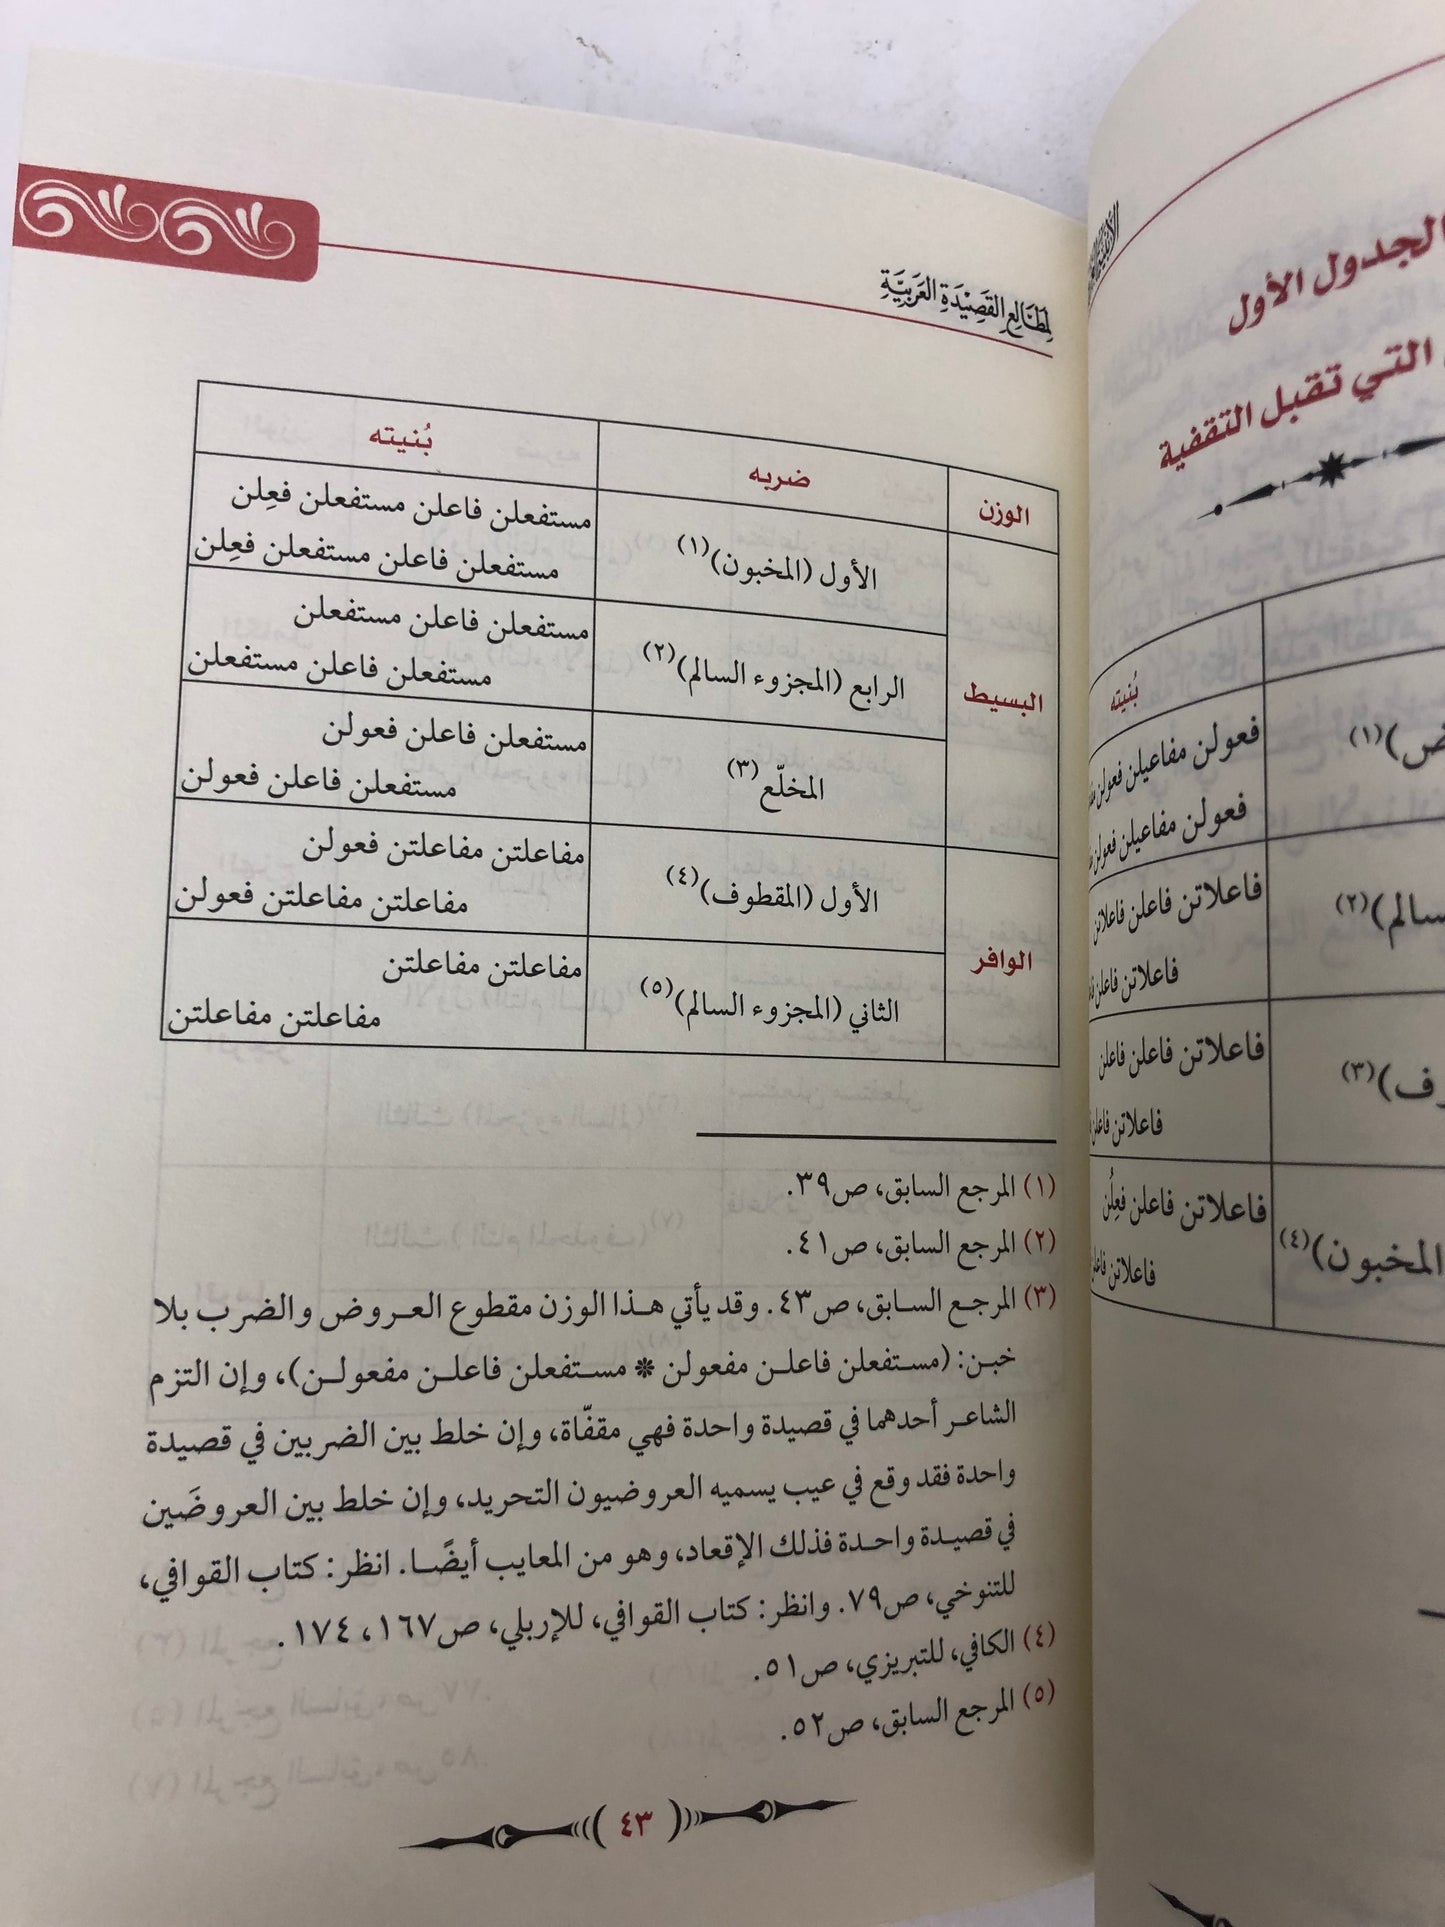 الجدول الأول
التي تقبل التقفية
بُنيته
ض)(١)
فعولن مفاعيلن فعولن
فعولن مفاعيلن فعولن
سالم)(٢)
فاعلاتن فاعلن فاعلاتن
فاعلاتن فاعلن
وف)(٣)
فاعلاتن فاعلن فاعلن
فاعلاتن فاعلن
المخبون)(٤)
فاعلاتن فاعلن فعِلُن
فاعلاتن فاعلن
لمَطَالِعِ القَصِيْدَةِ العَرَبِيَّةِ
الوزن ضربه بُنيته
البسيط
الأول (المخبون)(١)
مستفعلن فاعلن مستفعلن فعِلن
مستفعلن فاعلن مستفعلن فعِلن
الرابع (المجزوء السالم)(٢)
مستفعلن فاعلن مستفعلن
مستفعلن فاعلن مستفعلن
المخلّع(٣)
مستفعلن فاعلن فعولن
مستفعلن فاعلن فعولن
الوافر
الأول (المقطوف)(٤)
مفاعلتن مفاعلتن فعولن
مفاعلتن مفاعلتن فعولن
الثاني (المجزوء السالم)(٥)
مفاعلتن مفاعلتن
مفاعلتن مفاعلتن
(١) المرجع السابق، ص٣٩.
(٢) المرجع السابق، ص٤١.
(٣) المرجع السابق، ص٤٣. وقد يأتي هذا الوزن مقطوع العروض والضرب بلا
خبن: (مستفعلن فاعلن مفعولن * مستفعلن فاعلن مفعولن)، وإن التزم
الشاعر أحدهما في قصيدة واحدة فهي مقفّاة، وإن خلط بين الضربين في قصيدة
واحدة فقد وقع في عيب يسميه العروضيون التحريد، وإن خلط بين العروضَين
في قصيدة واحدة فذلك الإقعاد، وهو من المعايب أيضًا. انظر: كتاب القوافي،
للتنوخي، ص٧٩. وانظر: كتاب القوافي، للإربلي، ص١٦٧، ١٧٤.
(٤) الكافي، للتبريزي، ص٥١.
(٥) المرجع السابق، ص٥٢.
٤٣